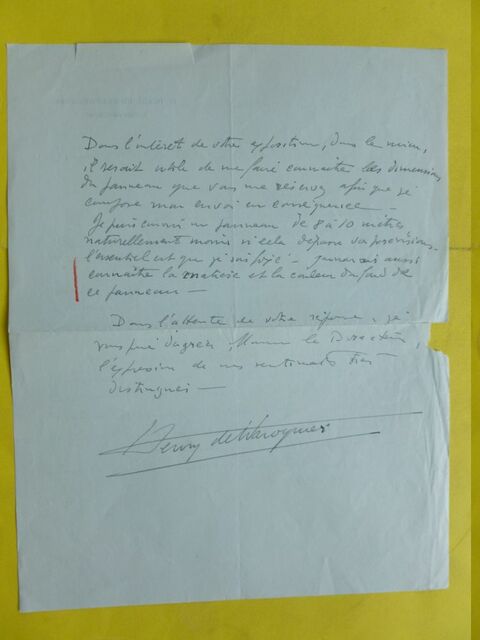 Dans l'intérêt de votre exposition, dans le mien,
il serait utile de me faire connaître les dimensions
du panneau que vous me réservez afin que je
compose mon envoi en conséquence —
Je puis couvrir un panneau de 8 à 10 mètres
naturellement moins si cela dépasse vos prévisions.
l'essentiel est que je sois fixé — j'aimerais aussi
connaître la matière et la couleur du fond de
ce panneau —
Dans l'attente de votre réponse, je
vous prie d'agréer, Monsieur le Directeur,
l'expression de mes sentiments très
distingués —
Henry de Waroquier